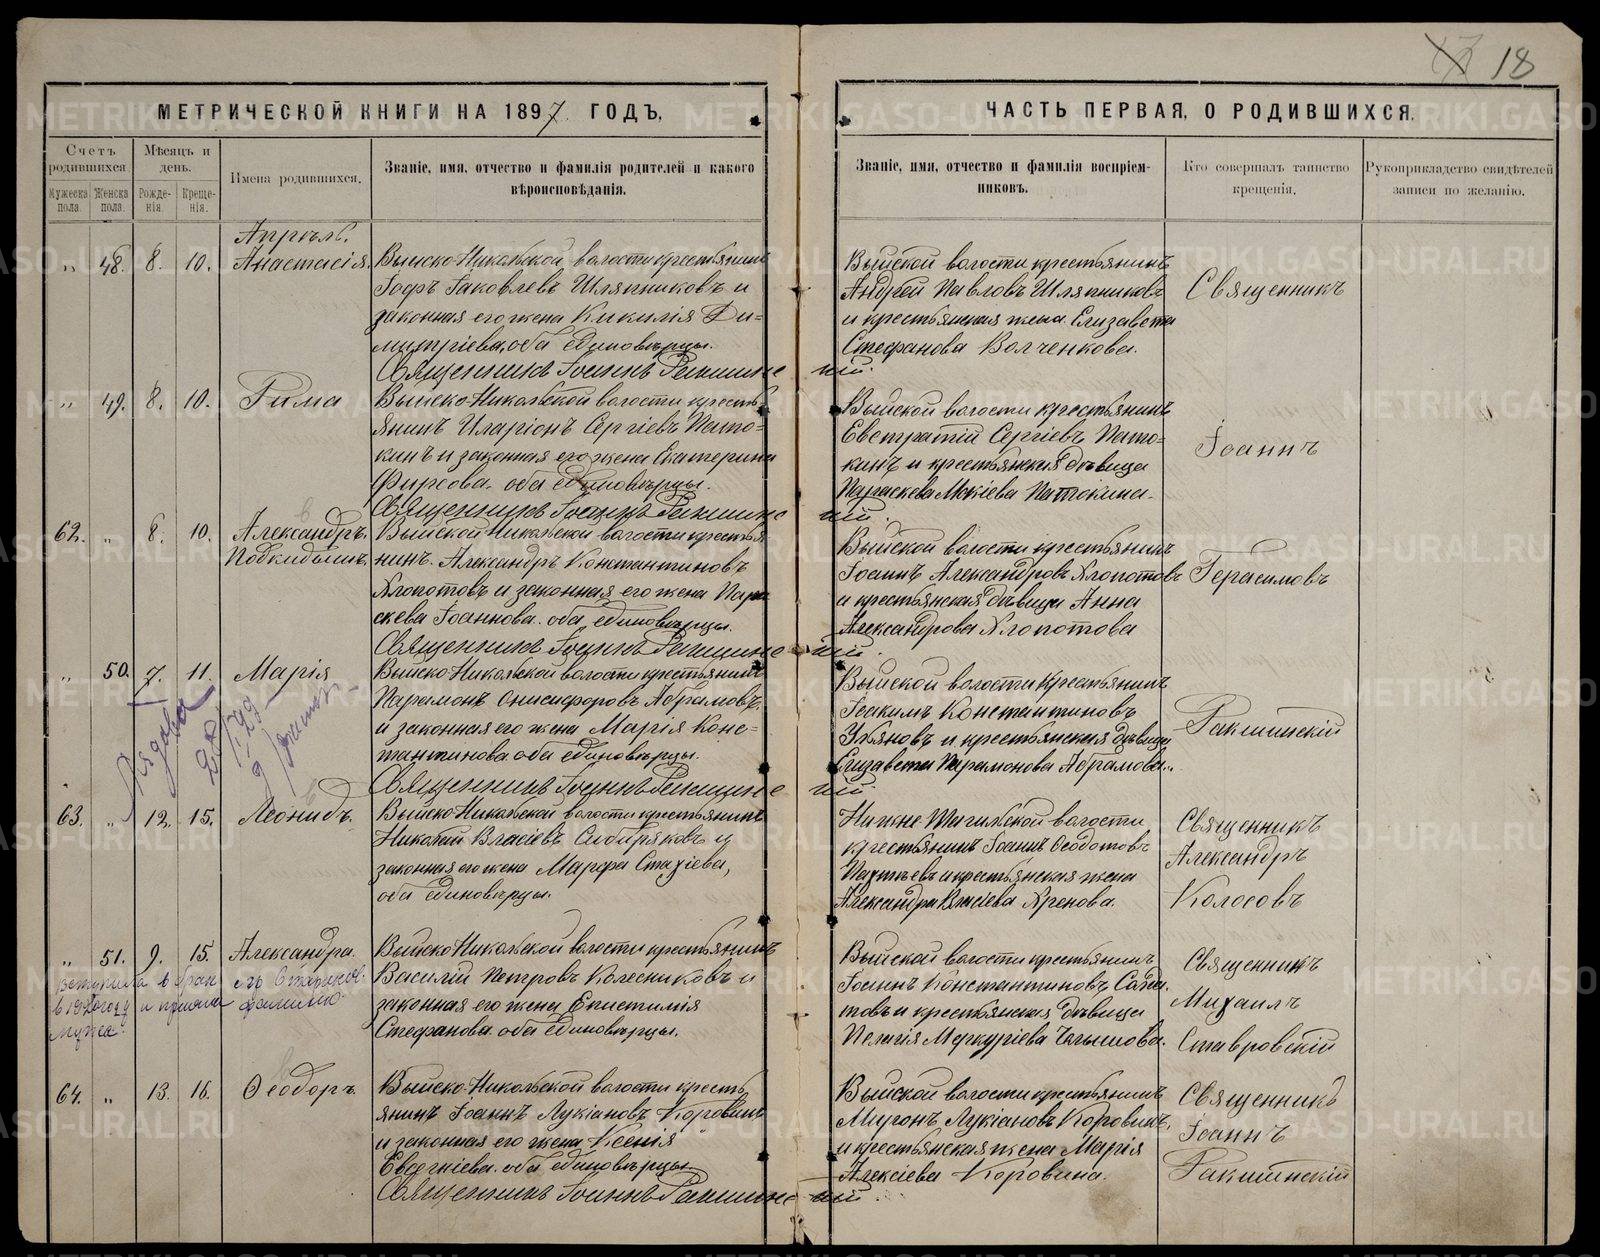 18
МЕТРИЧЕСКОЙ КНИГИ НА 1897 ГОДЪ,
Счетъ родившихся.
Мужеска пола.
Женска пола.
Мѣсяцъ и день.
Рожде-
нія.
Креще-
нія.
Имена родившихся.
Званіе, имя, отчество и фамилія родителей и какого
вѣроисповѣданія.
Апрѣль.
„ 48. 8. 10. Анастасія.
Выйско-Никольской волости крестьянинъ
Іаковлевъ Шляпниковъ и
законная его жена Кикилія Ди-
митріева, оба единовѣрцы.
Священникъ Іоаннъ Ракшинскій.
„ 49. 8. 10. Рима
Выйско-Никольской волости кресть-
янинъ Иларіонъ Сергіевъ Пато-
кинъ и законная его жена Екатерина
Фирсова. оба единовѣрцы.
Священникъ Іоаннъ Ракшинскій.
62. „ 8. 10. Александръ.
Подкидышъ.
Выйской Никольской волости крестья-
нинъ. Александръ Константиновъ
Хлопотовъ и законная его жена Пара
скева Іоаннова. оба единовѣрцы.
Священникъ Іоаннъ Ракшинскій.
„ 50. 7. 11. Марія
Выйско-Никольской волости крестьянинъ
Парамонъ Онисифоровъ Абрамовъ,
и законная его жена Марія Конс-
тантинова оба единовѣрцы.
Священникъ Іоаннъ Ракшинскій.
63. „ 12. 15. Леонидъ.
Выйско-Никольской волости крестьянинъ
Николай Власіевъ Сибиряковъ и
законная его жена Марфа Стахіева,
оба единовѣрцы.
„ 51. 9. 15. Александра.
Вступила в брак
и приняла фамилию
мужа.
Выйско-Никольской волости крестьянинъ
Василій Петровъ Колесниковъ и
законная его жена Епистимія
Стефанова оба единовѣрцы.
64. „ 13. 16. Ѳеодоръ.
Выйско-Никольской волости кресть
янинъ Іоаннъ Лукіановъ Коровинъ
и законная его жена Ксенія
Евгеніева. оба единовѣрцы.
Священникъ Іоаннъ Ракшинскій.
ЧАСТЬ ПЕРВАЯ, О РОДИВШИХСЯ.
Званіе, имя, отчество и фамилія воспріем-
никовъ.
Кто совершалъ таинство
крещенія.
Рукоприкладство свидѣтелей
записи по желанію.
Выйской волости крестьянинъ
Андрей Павловъ Шляпниковъ
и крестьянская жена Елизавета
Стефанова Волченкова.
Священникъ
Выйской волости крестьянинъ
Евстратій Сергіевъ Пато-
кинъ и крестьянская дѣвица
Параскева Мокіева Патокина.
Іоаннъ
Выйской волости крестьянинъ
Іоаннъ Александровъ Хлопотовъ
и крестьянская дѣвица Анна
Александрова Хлопотова
Герасимовъ
Выйской волости крестьянинъ
Іоакимъ Константиновъ
Ульяновъ и крестьянская дѣвица
Елизавета Парамонова Абрамова.
Ракшинскій
Нижне-Тагильской волости
крестьянинъ Іоаннъ Ѳеодотовъ
и крестьянская жена
Александра Власіева Хренова.
Священникъ
Александръ
Колосовъ
Выйской волости крестьянинъ
Іоаннъ Константиновъ
и крестьянская дѣвица
Пелагія Меркуріева
Священникъ
Михаилъ
Ставровскій
Выйской волости крестьянинъ
Миронъ Лукіановъ Коровинъ,
и крестьянская жена Марія
Алексіева Коровина.
Священникъ
Іоаннъ
Ракшинскій
METRIKI.GASO-URAL.RU